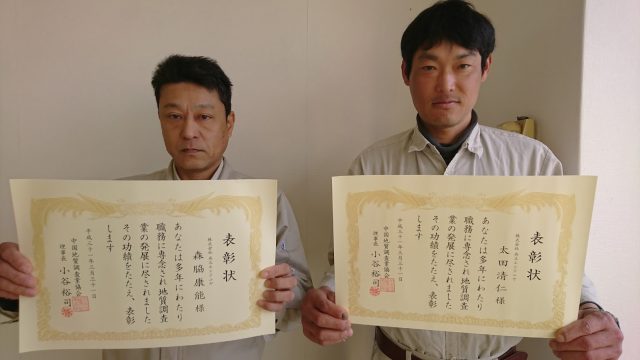 表彰状
森脇康能様
あなたは多年にわたり
職務に専念され地質調査
業の発展に尽されました
その功績をたたえ、表彰
します
平成三十一年三月二十一日
中国地質調査業協会
理事長 小谷裕司
表彰状
太田清仁様
あなたは多年にわたり
職務に専念され地質調査
業の発展に尽されました
その功績をたたえ、表彰
します
平成三十一年三月二十一日
中国地質調査業協会
理事長 小谷裕司